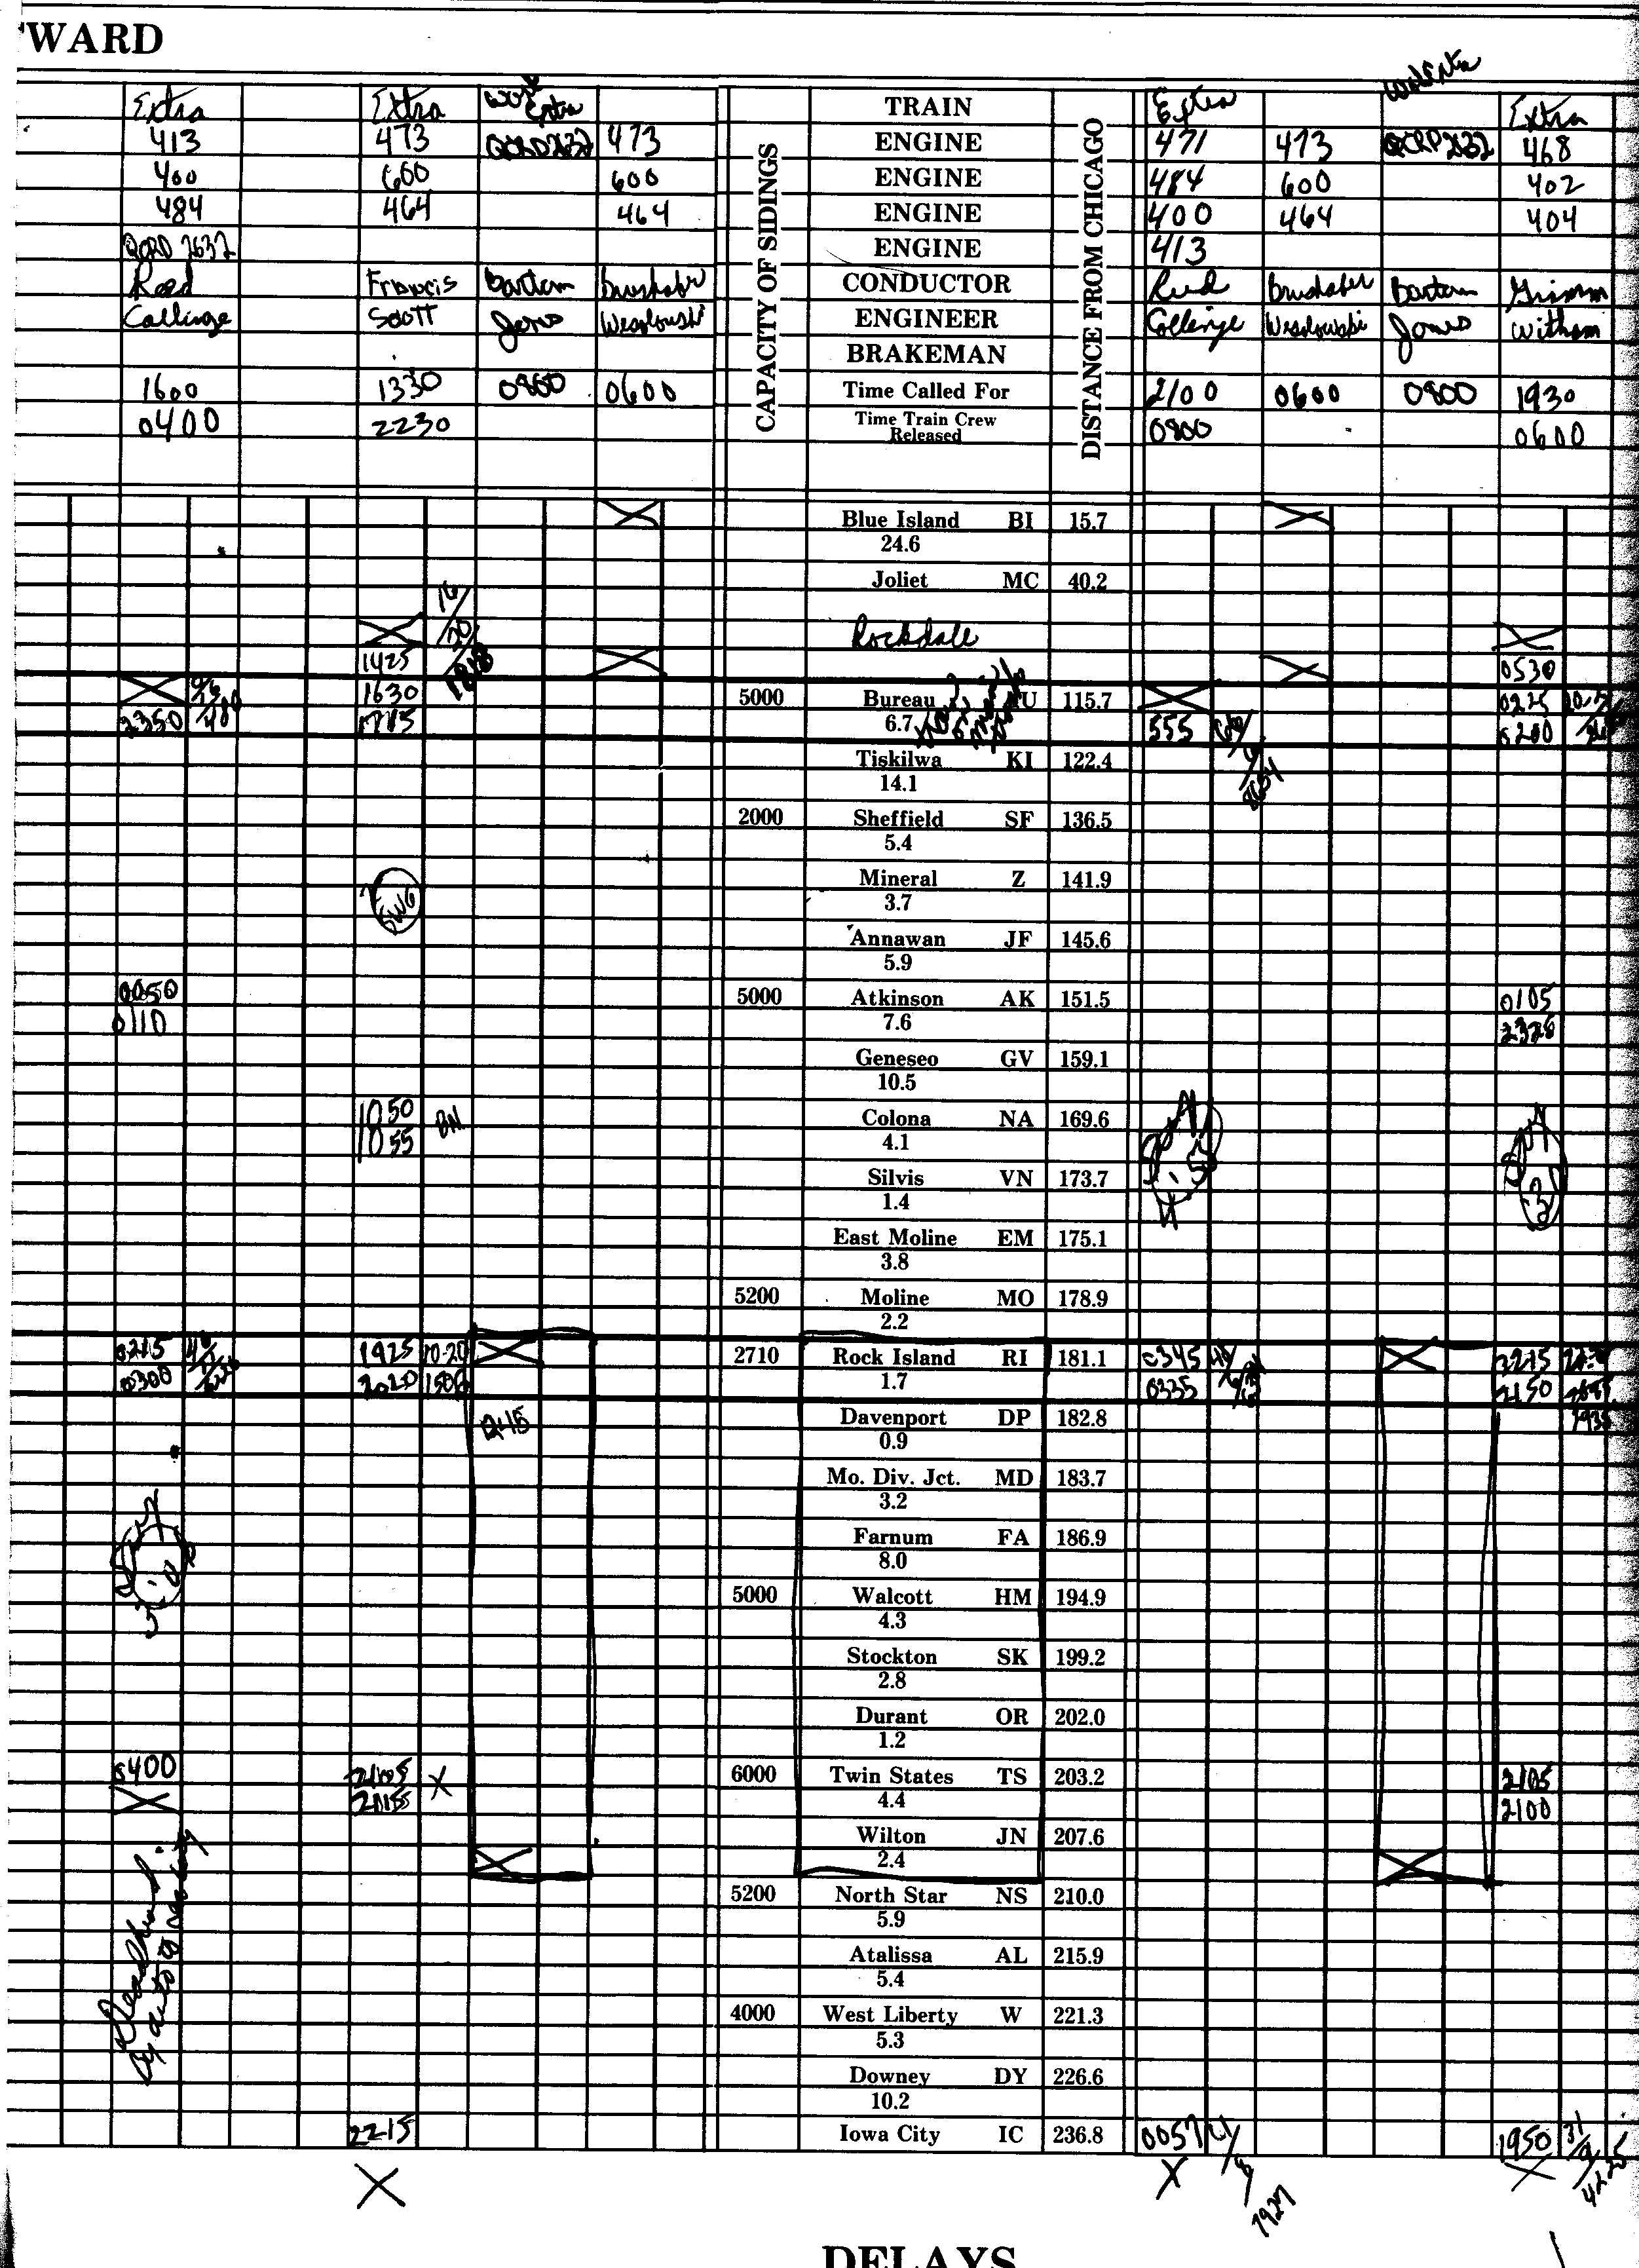 WARD
Extra Extra Work Extra TRAIN Extra Extra
413 473 473 ENGINE 471 473 468
400 600 600 ENGINE 484 600 402
484 464 464 ENGINE 400 464 404
QCRD 2632 ENGINE 413
Reed Francis Bartem CONDUCTOR Bartem Grimm
Collinge Scott Jones ENGINEER Collinge Wesolowski Jones Witham
BRAKEMAN
1600 1330 0800 0600 Time Called For 2100 0600 0800 1930
0400 2230 Time Train Crew 0800 0600
Released
CAPACITY OF SIDINGS
DISTANCE FROM CHICAGO
Blue Island BI 15.7
24.6
Joliet MC 40.2
Rockdale
1425 0530
1630 5000 Bureau 115.7 0225
2350 6.7 555 0200
Tiskilwa KI 122.4
14.1
2000 Sheffield SF 136.5
5.4
Mineral Z 141.9
3.7
Annawan JF 145.6
5.9
0050 5000 Atkinson AK 151.5 0105
0110 7.6
Geneseo GV 159.1
10.5
1850 BN Colona NA 169.6
1855 4.1
Silvis VN 173.7
1.4
East Moline EM 175.1
3.8
5200 Moline MO 178.9
2.2
0215 1925 10-20 2710 Rock Island RI 181.1 0345 2215
0300 2020 1.7 0335 2150
Davenport DP 182.8
0.9
Mo. Div. Jct. MD 183.7
3.2
Farnum FA 186.9
8.0
5000 Walcott HM 194.9
4.3
Stockton SK 199.2
2.8
Durant OR 202.0
1.2
0400 X 6000 Twin States TS 203.2 2105
4.4 2100
Wilton JN 207.6
2.4
5200 North Star NS 210.0
5.9
Atalissa AL 215.9
5.4
4000 West Liberty W 221.3
5.3
Downey DY 226.6
10.2
2215 Iowa City IC 236.8 0057 1950
X X X
DELAYS